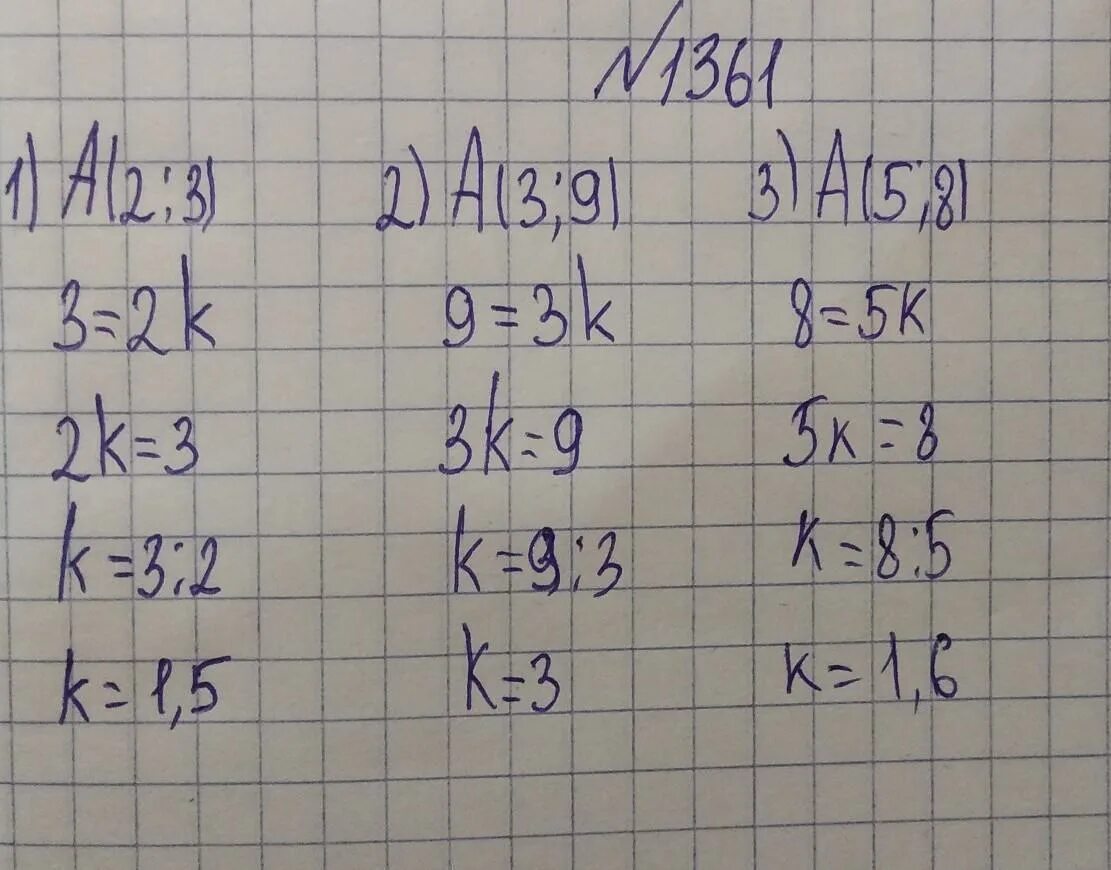 №1361
1) A(2;3)
3=2k
2k=3
k=3:2
k=1,5
2) A(3;9)
9=3k
3k=9
k=9:3
k=3
3) A(5;8)
8=5k
5k=8
k=8:5
k=1,6